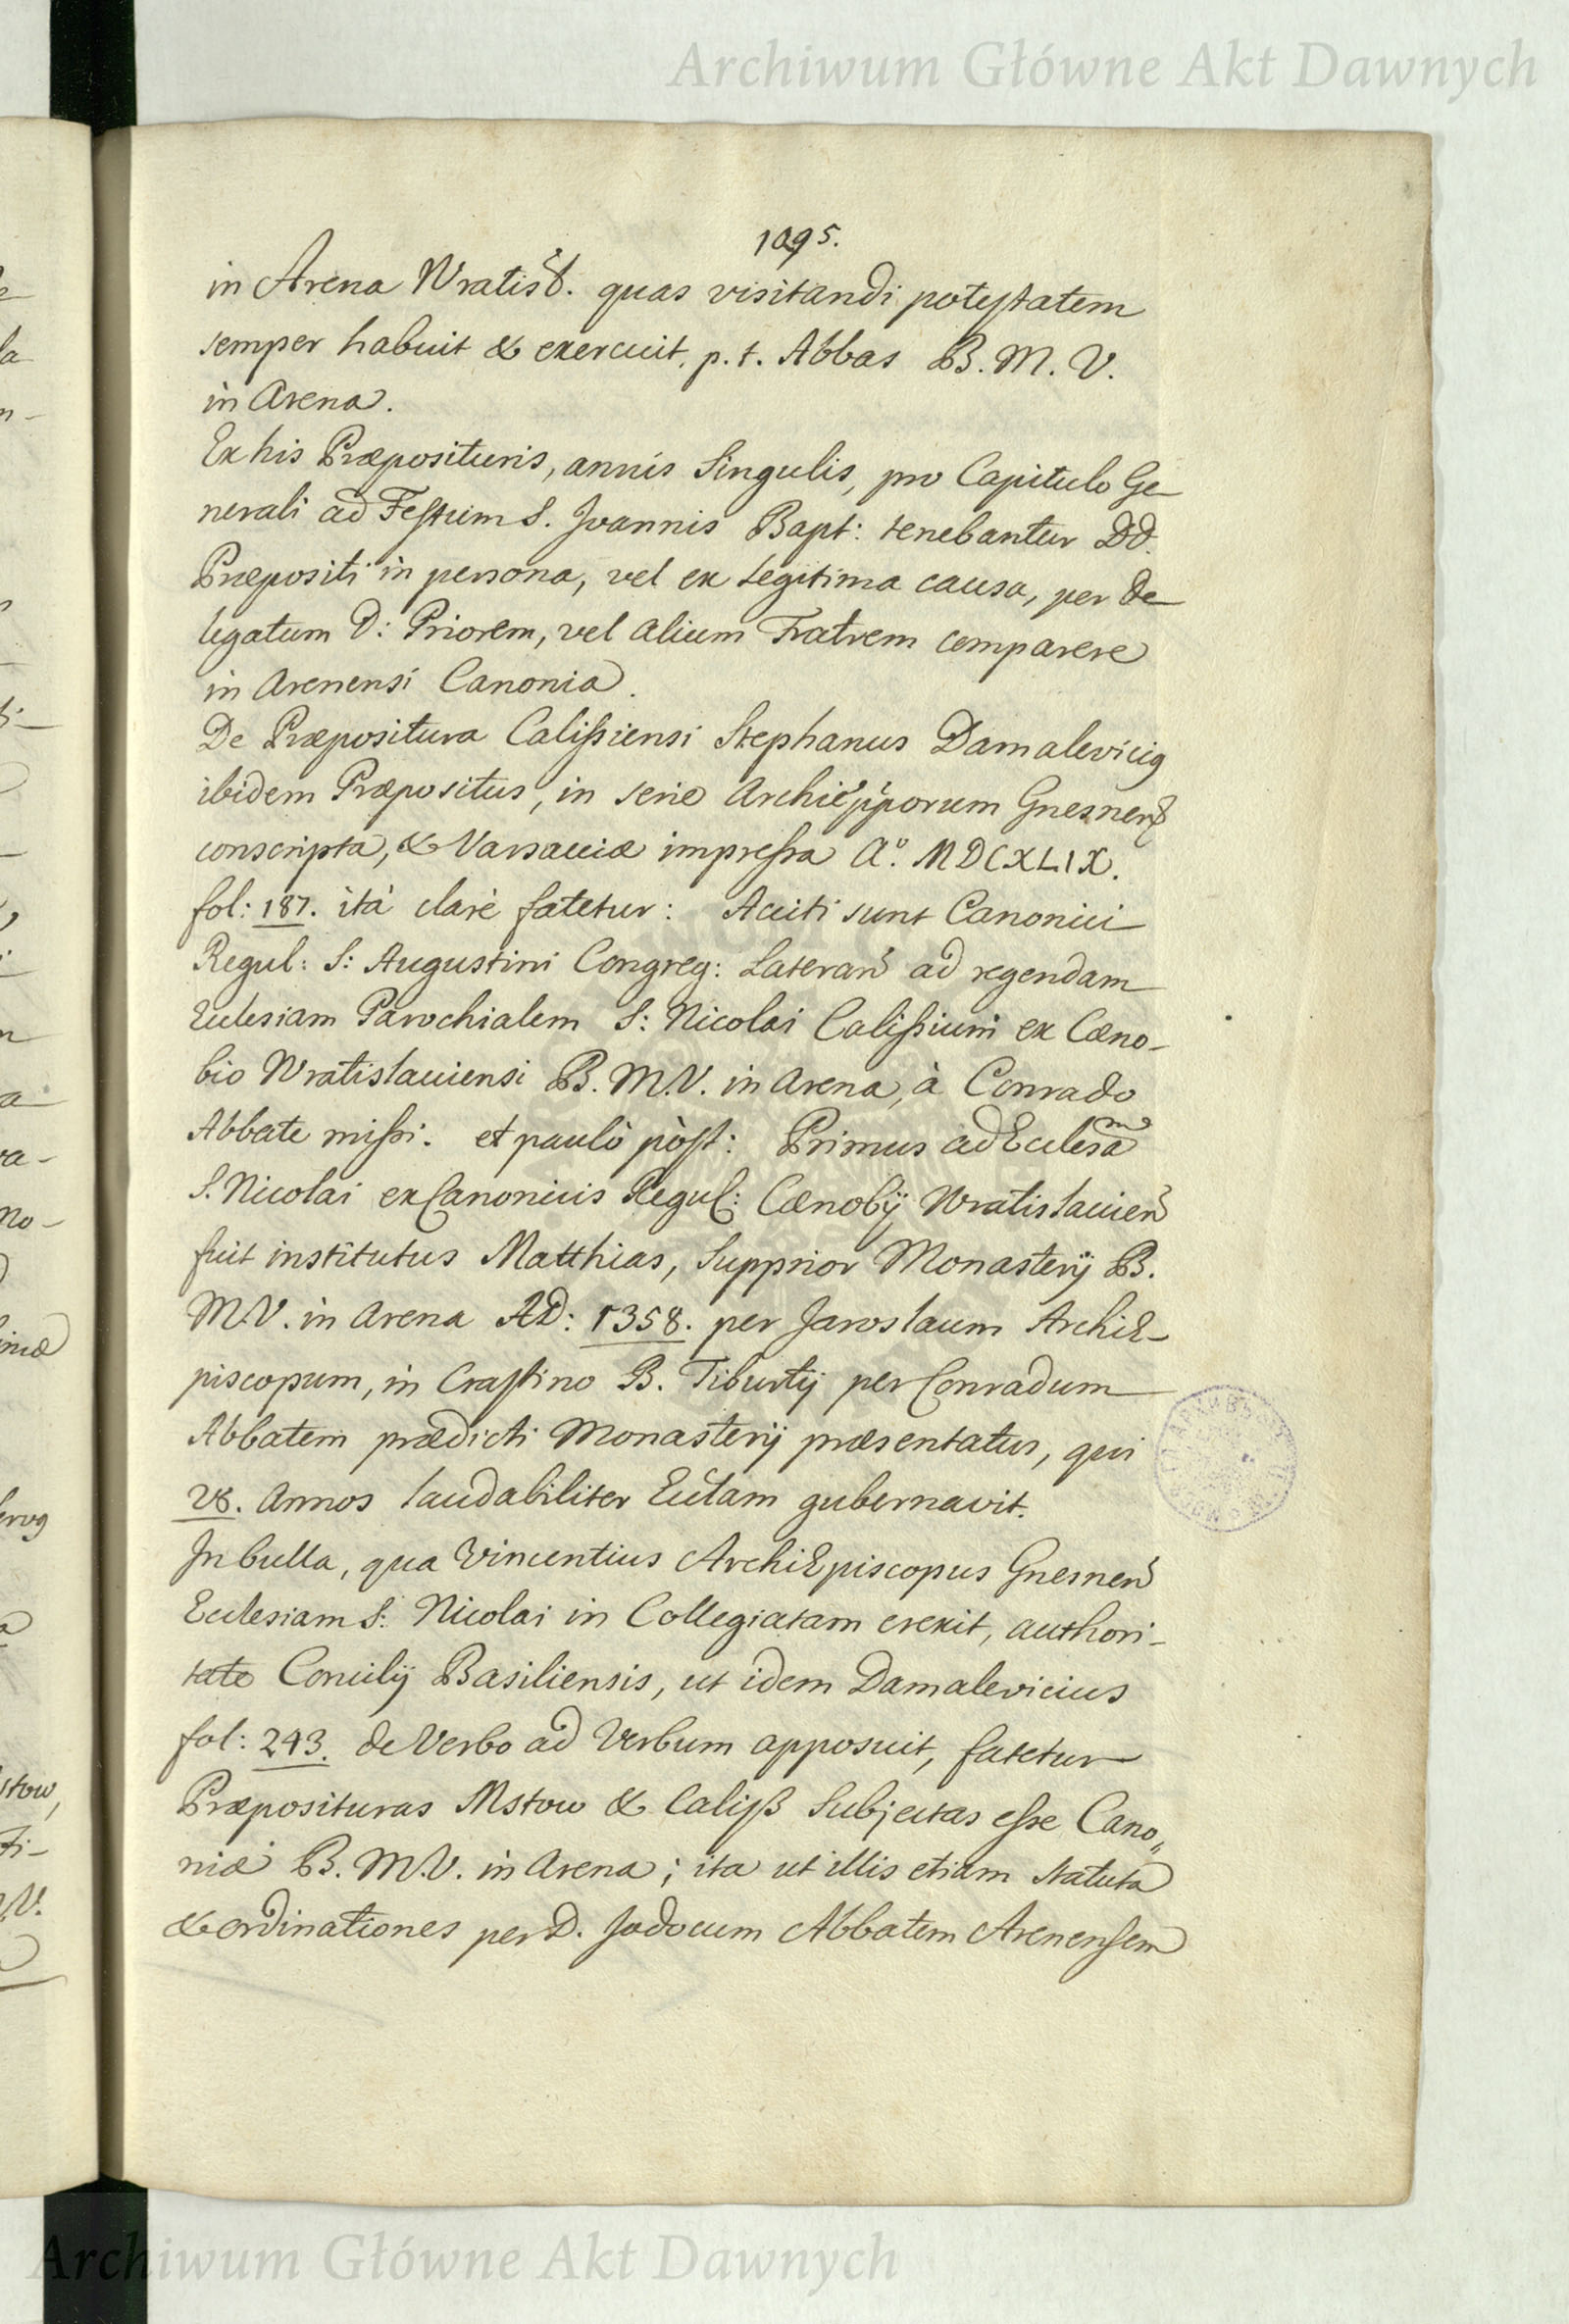 Archiwum Główne Akt Dawnych
1095.
in Arena Wratisł. quas visitandi potestatem
semper habuit & exercuit, p. t. Abbas B. M. V.
in Arena.
Ex his Præposituris, annis singulis, pro Capitulo Ge-
nerali ad Festum S. Joannis Bapt: tenebantur DD.
Præpositi in persona, vel ex legitima causa, per De-
legatum D: Priorem, vel alium Fratrem comparere
in Arenensi Canonia.
De Præpositura Calissiensi Stephanus Damalevicius
ibidem Præpositus, in serie Archiepporum Gnesnens
conscripta, & Varsaviæ impressa Aº. MDCXLIX.
fol: 187. ità clarè fatetur: Aciti sunt Canonici
Regul: S: Augustini Congreg: Lateran ad regendam
Ecclesiam Parochialem S: Nicolai Calissium ex Cœno-
bio Wratislauiensi B. M.V. in Arena, à Conrado
Abbate missi. et paulò pòst: Primus ad Ecclesam
S. Nicolai ex Canonicis Regul: Cœnobij Wratislauien
fuit institutus Matthias, Supprior Monasterij B.
M.V. in Arena AD: 1358. per Jaroslaum ArchiE-
piscopum, in Crastino B. Tiburtij per Conradum
Abbatem prædicti Monasterij præsentatus, qui
28. Annos laudabiliter Ecclam gubernavit.
In bulla, qua Vincentius ArchiEpiscopus Gnesnen
Ecclesiam S: Nicolai in Collegiatam erexit, authori-
tate Concilij Basiliensis, ut idem Damalevicius
fol: 243. de Verbo ad Verbum apposuit, fatetur
Præposituras Mstow & Caliß Subjectas esse Cano„
niæ B. M.V. in Arena; ita ut illis etiam Statuta
& ordinationes per D. Jodocum Abbatem Arenensem
Archiwum Główne Akt Dawnych